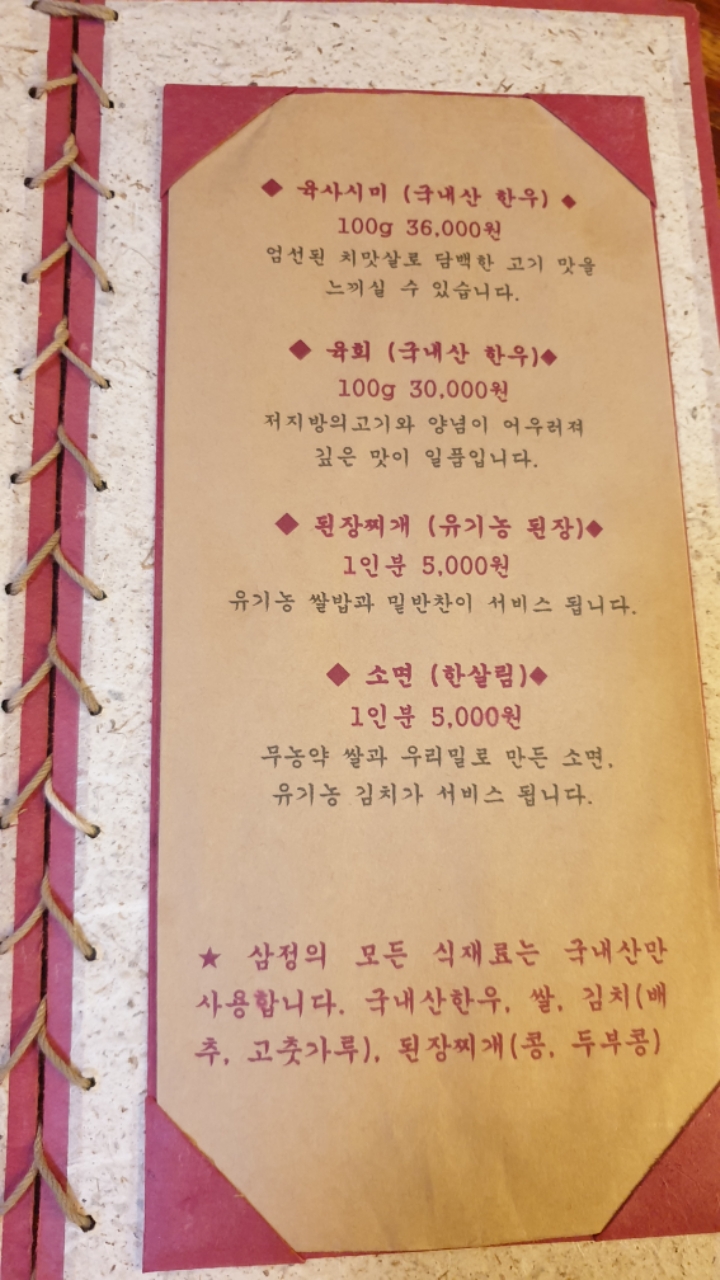 ◆ 육사시미 (국내산 한우) ◆
100g 36,000원
엄선된 치맛살로 담백한 고기 맛을
느끼실 수 있습니다.
◆ 육회 (국내산 한우)◆
100g 30,000원
저지방의고기와 양념이 어우러져
깊은 맛이 일품입니다.
◆ 된장찌개 (유기농 된장)◆
1인분 5,000원
유기농 쌀밥과 밑반찬이 서비스 됩니다.
◆ 소면 (한살림)◆
1인분 5,000원
무농약 쌀과 우리밀로 만든 소면,
유기농 김치가 서비스 됩니다.
★ 삼정의 모든 식재료는 국내산만
사용합니다. 국내산한우, 쌀, 김치(배
추, 고춧가루), 된장찌개(콩, 두부콩)